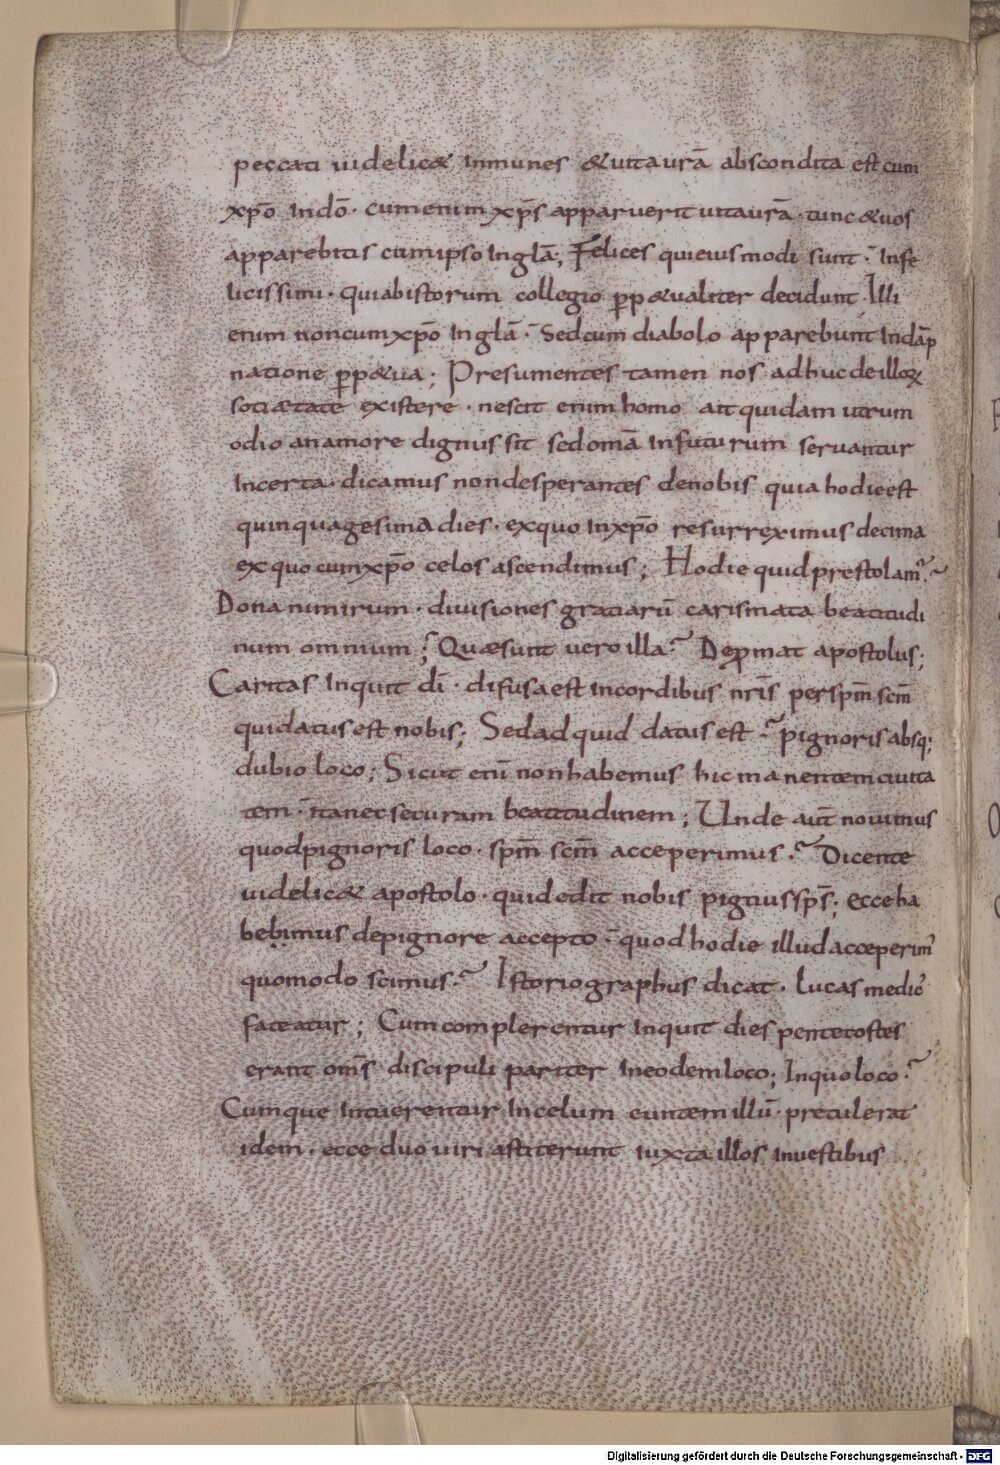 peccati uidelic& inmunes &uita urā abscondita est cum
xp̄o in dō· cum enim xp̄s apparuerit uita urā· tunc &uos
apparebitis cum ipso in glā; Felices qui eius modi sunt· Infe
licissimi· qui ab istorum collegio perp&ualiter decidunt. Illi
enim non cum xp̄o in glā· Sed cum diabolo apparebunt in dāp
natione perp&ua; Presumentes tamen nos ad huc de illoꝝ
sociætate existere· nescit enim homo ait quidam utrum
odio an amore dignus sit sed omā in futurum seruantur
incerta· dicamus non desperantes de nobis quia hodie est
quinquagesima dies· ex quo in xp̄o resurreximus decima
ex quo cum xp̄o celos ascendimus; Hodie quid prestolam᷒?
Dona nimirum· diuisiones gratiarū carismata beatitudi
num omnium; Quæ sunt uero illa? Depromat apostolus;
Caritas inquit dī· difusa est in cordibus nrīs per spm̄ scm̄
qui datus est nobis; Sed ad quid datus est? pignoris absq;
dubio loco; Sicut enī non habemus hic manentem ciuita
tem· ita nec securam beatitudinem; Unde aūt nouimus
quod pignoris loco· spm̄ scm̄ acceperimus? Dicente
uidelic& apostolo· qui dedit nobis pignus sp̄s; ecce ha
bebimus de pignore accepto· quod hodie illud acceperim᷒
quomodo scimus? Istoriographus dicat· Lucas medic᷒
fateatur; Cum complerentur inquit dies pentecostes
erant om̄s discipuli pariter in eodem loco; In quo loco?
Cumque intuerentur in celum euntem illū· pretulerat
idem· ecce duo uiri astiterunt iuxta illos in uestibus
Digitalisierung gefördert durch die Deutsche Forschungsgemeinschaft - DFG